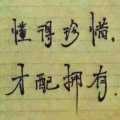 懂得珍惜.
才配拥存.